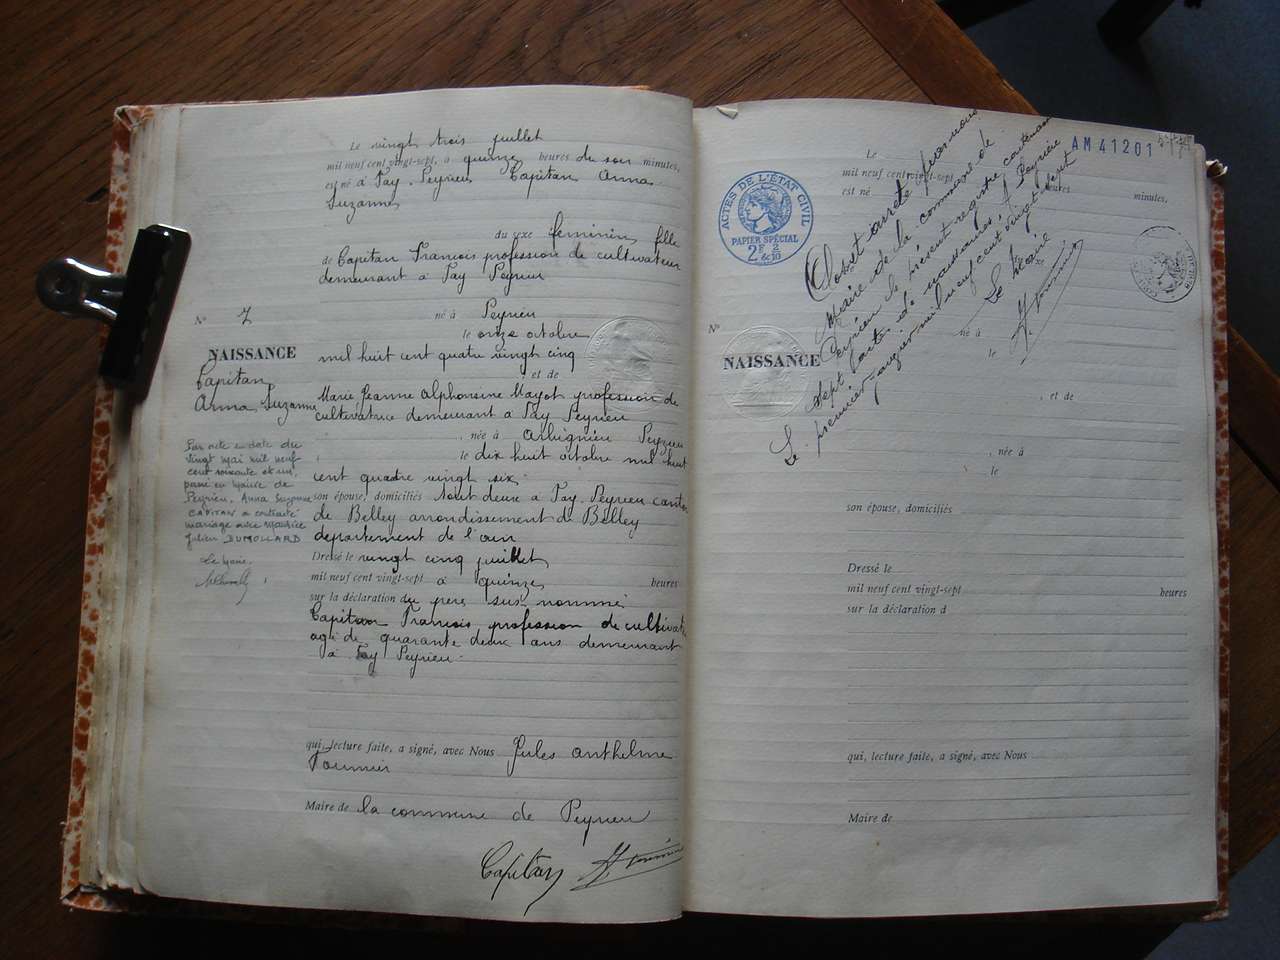 Le vingt trois juillet
mil neuf cent vingt-sept, à quinze heures du soir minutes,
est né à Fay. Peyrieu Capitan Anna
Suzanne
du sexe féminin fille
de Capitan Francois profession de cultivateur
demeurant à Fay Peyrieu
né à Peyrieu
le onze octobre
mil huit cent quatre vingt cinq
et de
Marie Jeanne Alphonsine Mayot profession de
cultivatrice demeurant à Fay Peyrieu
, née à Arbignieu Peyzieu
le dix huit octobre mil huit
cent quatre vingt six
son épouse, domiciliés tout deux à Fay. Peyrieu canton
de Belley arrondissement de Belley
departement de l'ain
Dressé le vingt cinq juillet
mil neuf cent vingt-sept à quinze heures
sur la déclaration du père sus nommé
Capitan Francois profession de cultivat
agé de quarante deux ans demeurant
à Fay Peyrieu
qui, lecture faite, a signé, avec Nous Jules anthelme
Tournier
Maire de la commune de Peyrieu
Capitan
N° 7
NAISSANCE
Capitan
Anna Suzanne
Par acte en date du
vingt mai mil neuf
cent soixante et un,
passé en Mairie de
Peyrieu, Anna Suzanne
CAPITAN a contracté
mariage avec Maurice
Julien DUMOLLARD
Le Maire,
AM 41201
ACTES DE L'ÉTAT CIVIL
PAPIER SPÉCIAL
2F 2/10
& 10
Le
mil neuf cent vingt-sept
heures minutes,
est né
Clos et arrêté par nous
Maire de la commune de
Peyrieu le présent registre contenant
sept actes de naissances, à Peyrieu
Le premier janvier mil neuf cent vingt huit
Le Maire
N°
NAISSANCE
né à
le
, et de
, née à
, le
son épouse, domiciliés
Dressé le
mil neuf cent vingt-sept heures
sur la déclaration d
qui, lecture faite, a signé, avec Nous
Maire de